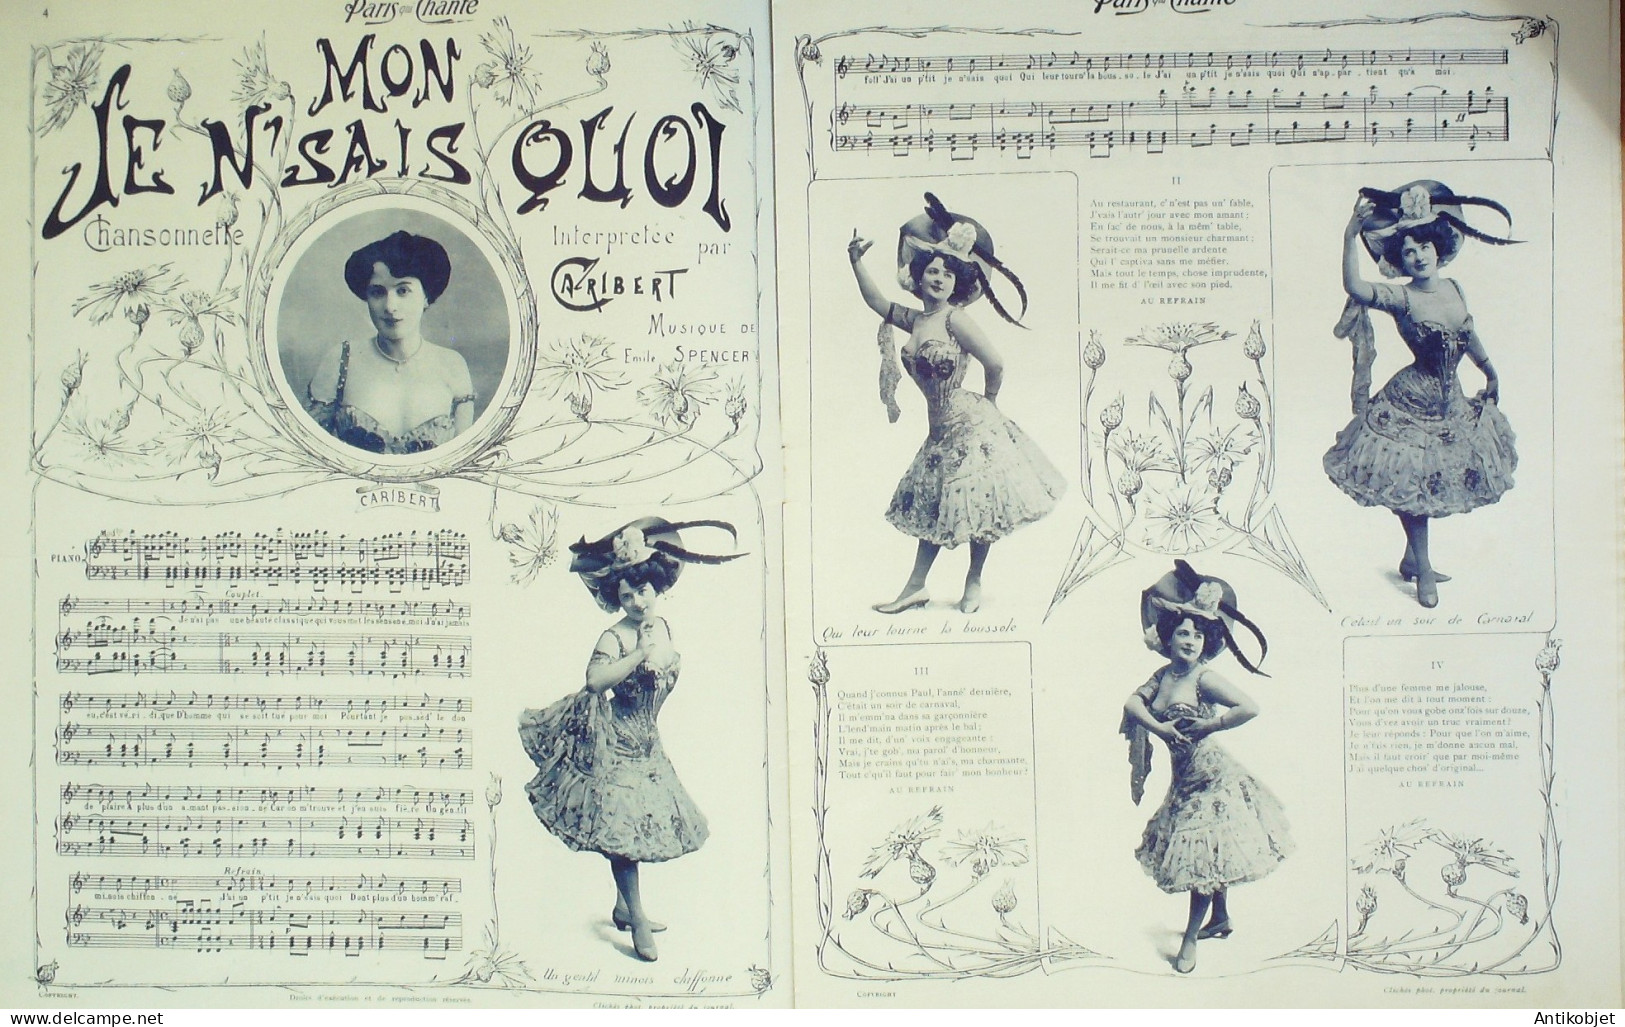 4
Paris qui Chante
MON
JE N'SAIS QUOI
Chansonnette
Interpretée par
CARIBERT
MUSIQUE DE
Emile SPENCER
CARIBERT
PIANO
Couplet.
Je n'ai pas une beauté classique qui vous met les sens en émoi J'n'ai jamais
eu, c'est vé_ri_di_que D'homme qui se soit tué pour moi Pourtant je pos_sèd' le don
de plaire A plus d'un a_mant pas_sion_né Car on m'trouve et j'en suis fiè_re Un gen_til
Refrain.
mi_nois chiffon_né J'ai un p'tit je n'sais quoi Dont plus d'un homm' raf_
Un gentil minois chiffonne
COPYRIGHT
Droits d'exécution et de reproduction réservés.
Clichés phot. propriété du journal.
Paris qui Chante
foll' J'ai un p'tit je n'sais quoi Qui leur tourn' la bous_so_le J'ai un p'tit je n'sais quoi Qui n'ap_par_tient qu'à moi.
Qui leur tourne la boussole
II
Au restaurant, c' n'est pas un' fable,
J'vais l'autr' jour avec mon amant;
En fac' de nous, à la mêm' table,
Se trouvait un monsieur charmant;
Serait-ce ma prunelle ardente
Qui l' captiva sans me méfier.
Mais tout le temps, chose imprudente,
Il me fit d' l'œil avec son pied.
AU REFRAIN
C'était un soir de Carnaval
III
Quand j'connus Paul, l'anné' dernière,
C'était un soir de carnaval,
Il m'emm'na dans sa garçonnière
L'lend'main matin après le bal;
Il me dit, d'un' voix engageante :
Vrai, j'te gob', ma parol' d'honneur,
Mais je crains qu'tu n'ai's, ma charmante,
Tout c'qu'il faut pour fair' mon bonheur?
AU REFRAIN
IV
Plus d'une femme me jalouse,
Et l'on me dit à tout moment :
Pour qu'on vous gobe onz' fois sur douze,
Vous d'vez avoir un truc vraiment?
Je leur réponds : Pour que l'on m'aime,
Je n'fais rien, je m'donne aucun mal,
Mais il faut croir' que par moi-même
J'ai quelque chos' d'original...
AU REFRAIN
COPYRIGHT
Clichés phot. propriété du journal.
Antikobjet